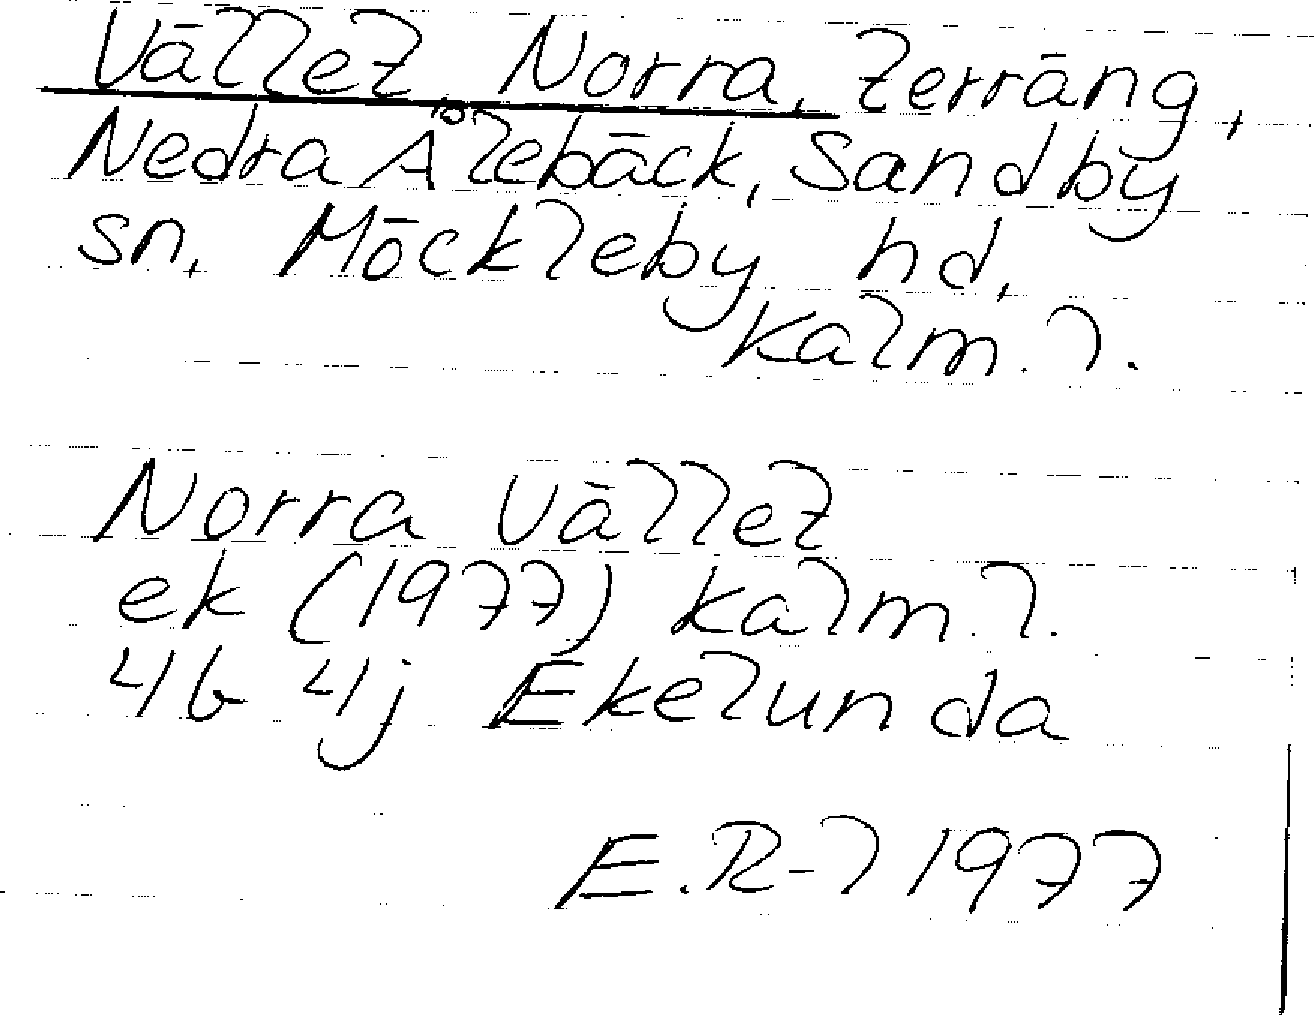 Vället, Norra, terräng,
Nedra Ålebäck, Sandby
sn, Möckleby hd,
Kalm. l.
Norra Vället
ek (1977) Kalm. l.
4G 4j Ekelunda
E.R-l 1977